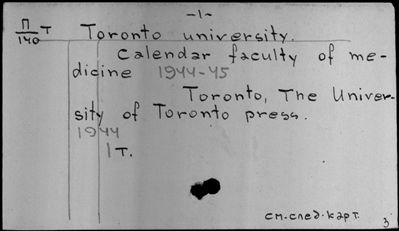 -1-
П/140 т Toronto university.
Calendar faculty of me-
dicine 1944-45
Toronto, The Univer-
sity of Toronto press.
1944
1 т.
см. след. карт.
3